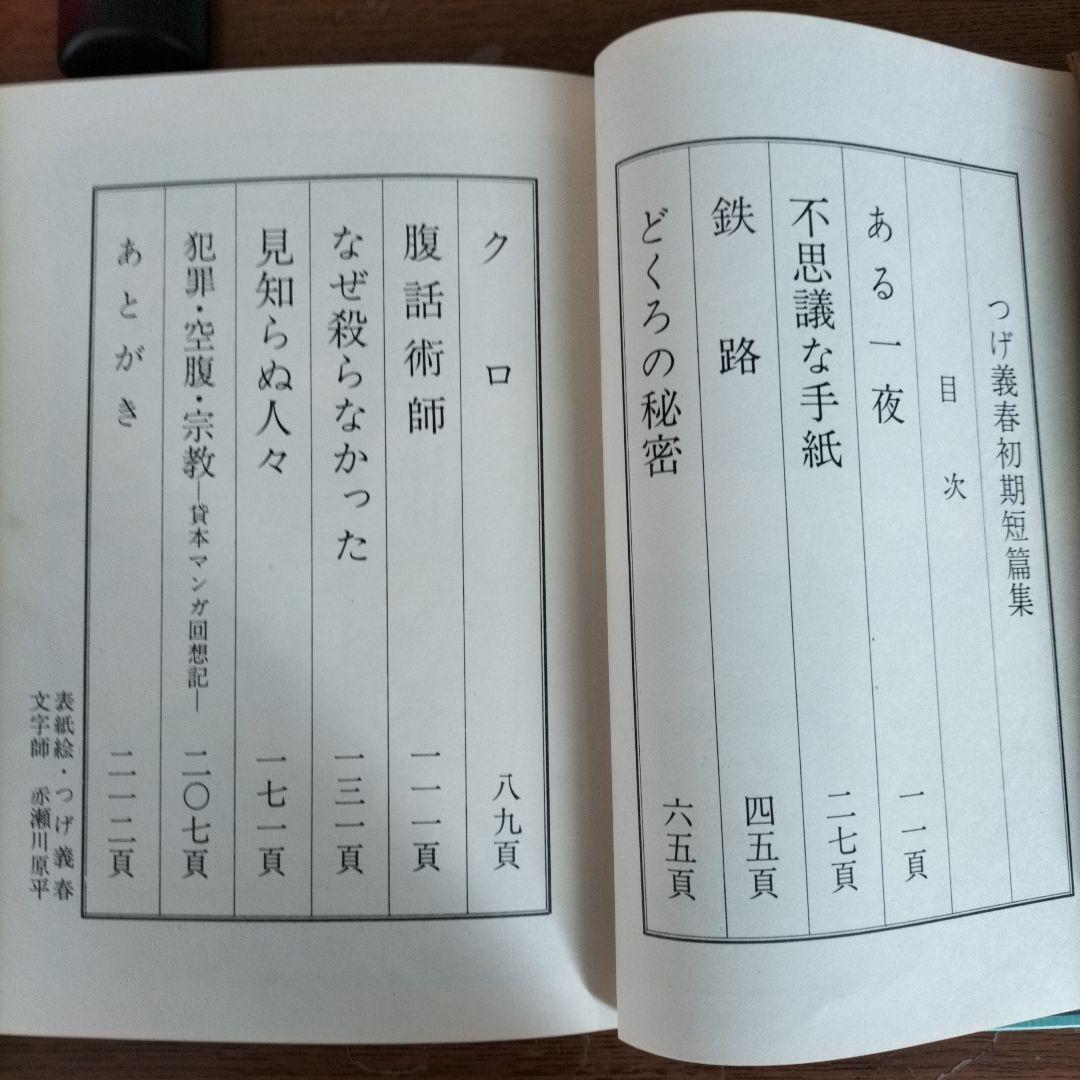 つげ義春初期短篇集
目次
ある一夜 一一頁
不思議な手紙 二七頁
鉄路 四五頁
どくろの秘密 六五頁
クロ 八九頁
腹話術師 一一一頁
なぜ殺らなかった 一三一頁
見知らぬ人々 一七一頁
犯罪・空腹・宗教―貸本マンガ回想記― 二〇七頁
あとがき 二一二頁
表紙絵・つげ義春
文字師 赤瀬川原平